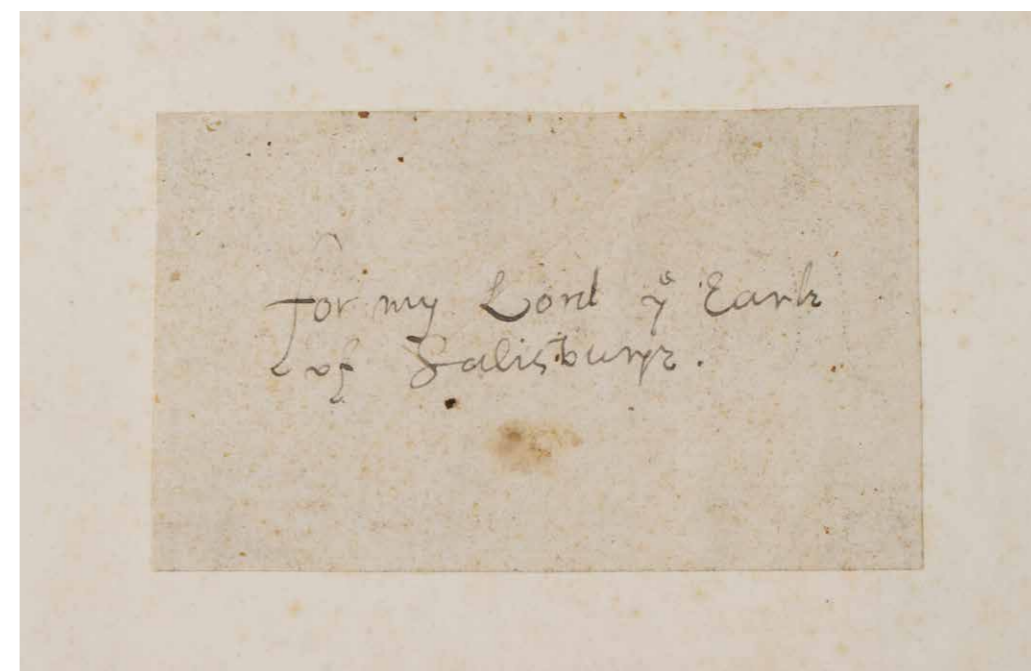 For my Lord yͤ Earle
of Salisburye.